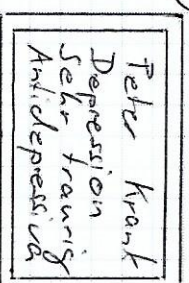 Peter Krank
Depression
Sehr traurig
Antidepressiva